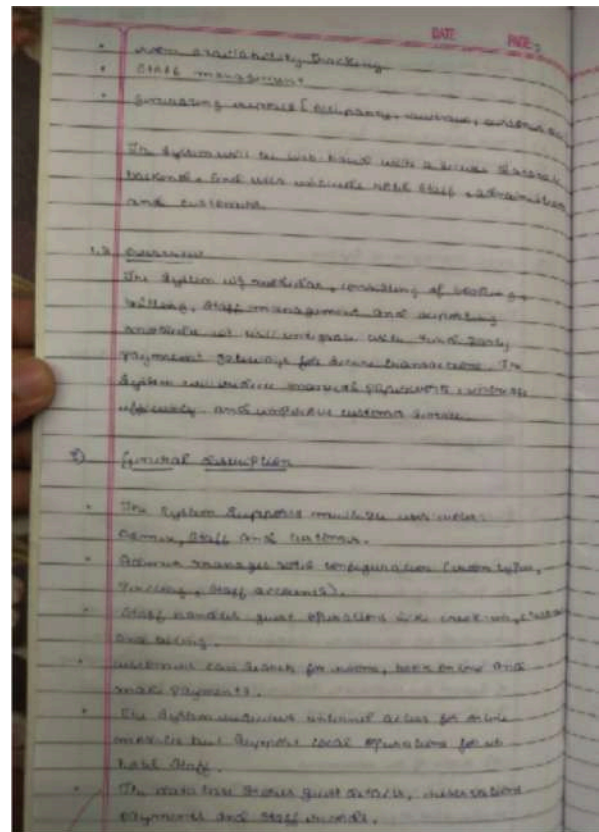 DATE PAGE: 2
• room availability tracking
• Staff management
• Generating reports (occupancy, revenue, customer
The system will be web-based with a secure database
backend. End users include hotel staff, administrators
and customers.
1.3 Overview
The system is modular, consisting of booking,
billing, staff management and reporting
modules. It will integrate with third party
payment gateways for secure transactions. The
system will reduce manual paperwork, increase
efficiency and improve customer service.
2) General Description
• The system supports multiple user roles:
Admin, Staff and Customer.
• Admin manages hotel configuration (room types,
pricing, staff accounts).
• Staff handles guest operations like check-in,
and billing.
• customers can search for rooms, book online and
make payments.
• The system requires internet access for online
modules but supports local operations for
hotel staff.
• The database stores guest details, reservations
payments and staff records.